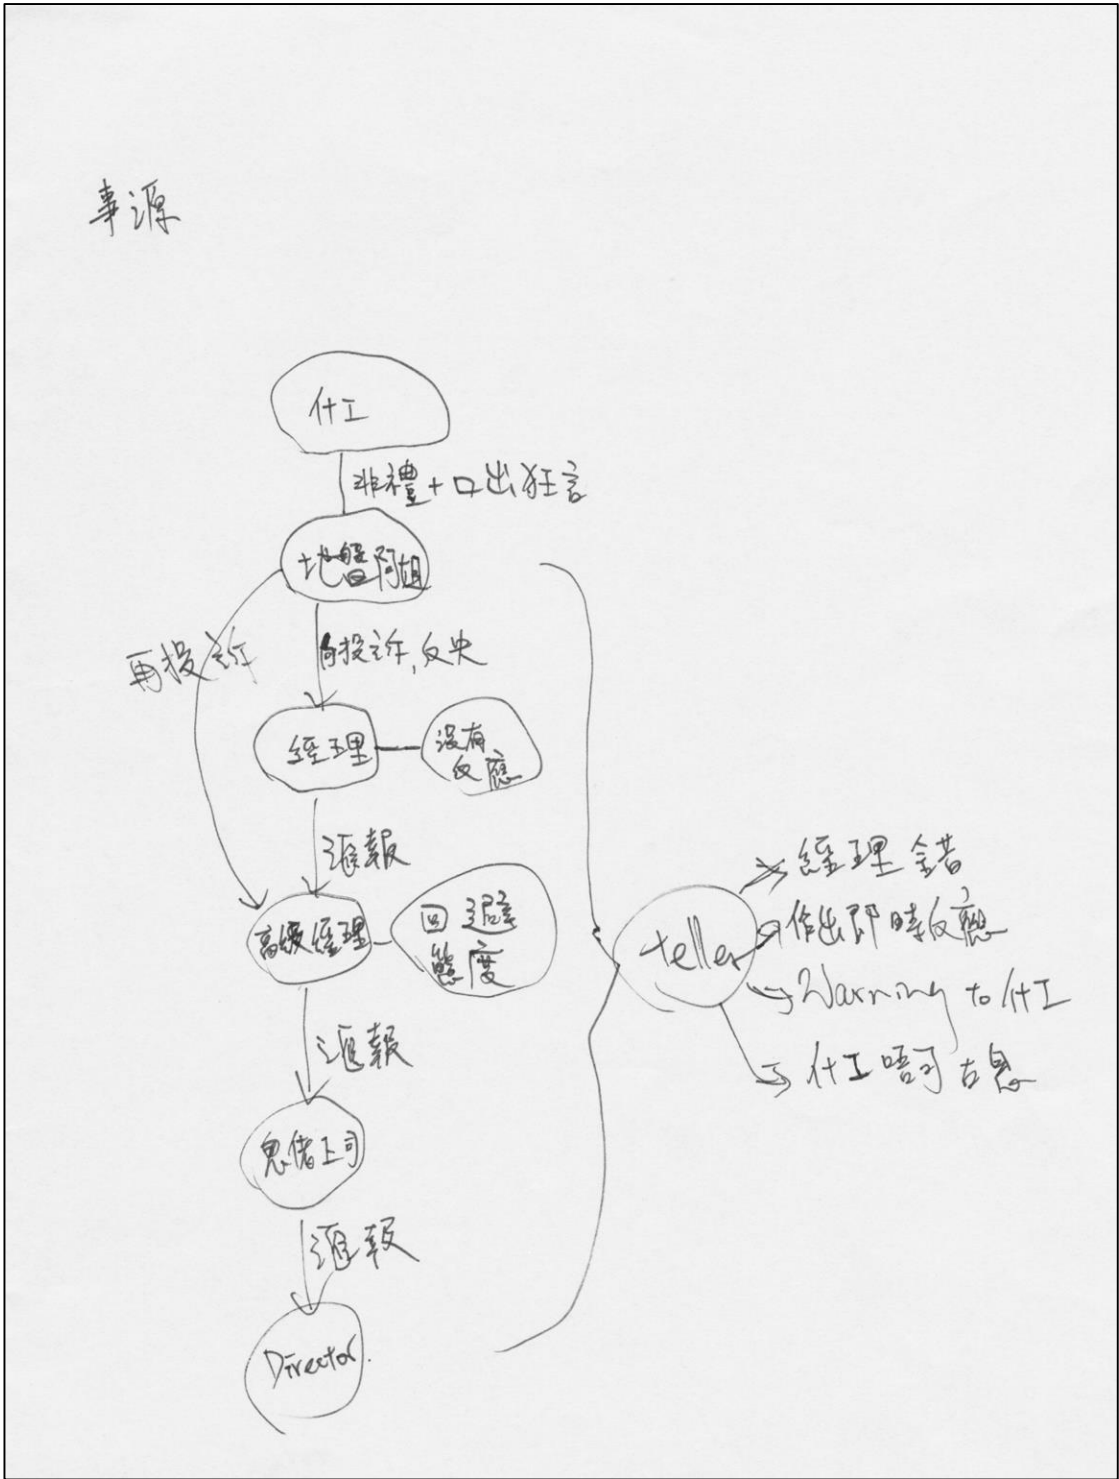 事源
什工
非禮+口出狂言
地盤阿姐
再投訴
向投訴,反央
經理
沒有
反應
滙報
高級經理
回避
態度
滙報
鬼佬上司
滙報
Director.
teller
經理錯
作出即時反應
Warning to 什工
什工唔可